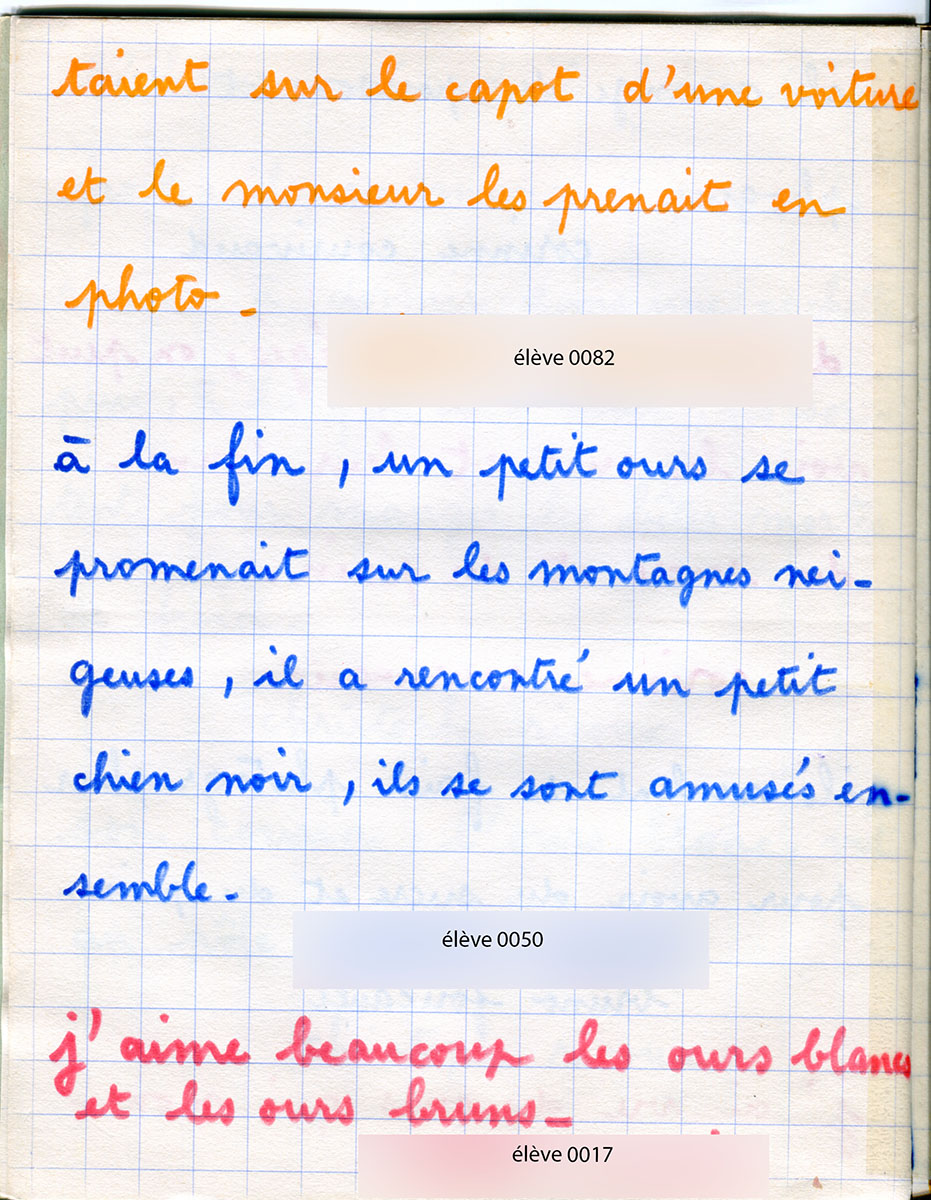 taient sur le capot d'une voiture
et le monsieur les prenait en
photo.
élève 0082
à la fin, un petit ours se
promenait sur les montagnes nei-
geuses, il a rencontré un petit
chien noir, ils se sont amusés en-
semble.
élève 0050
j'aime beaucoup les ours blancs
et les ours bruns.
élève 0017